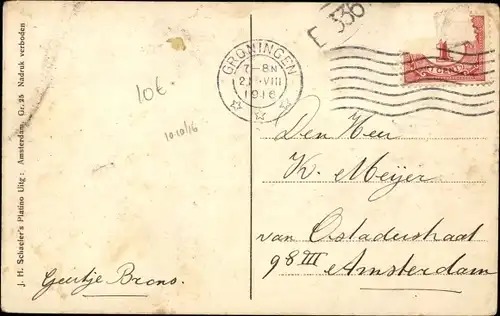 J. H. Schaefer's Platino Uitg: Amsterdam. Gr. 25 Nadruk verboden
10€
10-10/16
Geertje Brons.
GRONINGEN
7-8N
VIII
1916
E 336
1
CENT
Den Heer
K. Meijer
van Ostadestraat
98 III
Amsterdam